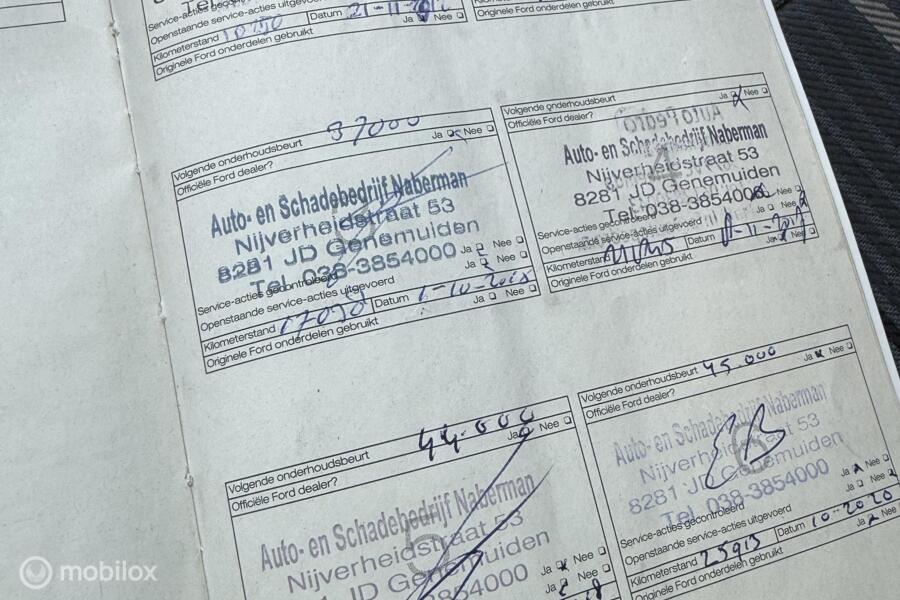 Service-acties gecontroleerd
Openstaande service-acties uitgevoerd
Ja Nee
Kilometerstand 10750 Datum 21-11-
Originele Ford onderdelen gebruikt
Originele Ford onderdelen gebruikt
Volgende onderhoudsbeurt 37000
Officiële Ford dealer? Ja Nee
Auto- en Schadebedrijf Naberman
Nijverheidstraat 53
8281 JD Genemuiden
Tel. 038-3854000
Service-acties gecontroleerd Ja Nee
Openstaande service-acties uitgevoerd Ja Nee
Kilometerstand 17098 Datum 1-10-
Originele Ford onderdelen gebruikt Ja Nee
Volgende onderhoudsbeurt
Officiële Ford dealer? Ja Nee
Auto- en Schadebedrijf Naberman
Nijverheidstraat 53
8281 JD Genemuiden
Tel. 038-3854000
Service-acties gecontroleerd Ja Nee
Openstaande service-acties uitgevoerd Ja Nee
Kilometerstand Datum 8-11-
Originele Ford onderdelen gebruikt Ja Nee
Volgende onderhoudsbeurt 44.000
Officiële Ford dealer? Ja Nee
Auto- en Schadebedrijf Naberman
5
Nijverheidstraat 53
JD Genemuiden
038-3854000
Ja Nee
Ja Nee
Volgende onderhoudsbeurt 45.000
Officiële Ford dealer? Ja Nee
Auto- en Schadebedrijf Naberman
6
Nijverheidstraat 53
8281 JD Genemuiden
Tel. 038-3854000
Service-acties gecontroleerd Ja Nee
Openstaande service-acties uitgevoerd Ja Nee
Kilometerstand 25913 Datum 10-2020
Originele Ford onderdelen gebruikt Ja Nee
mobilox